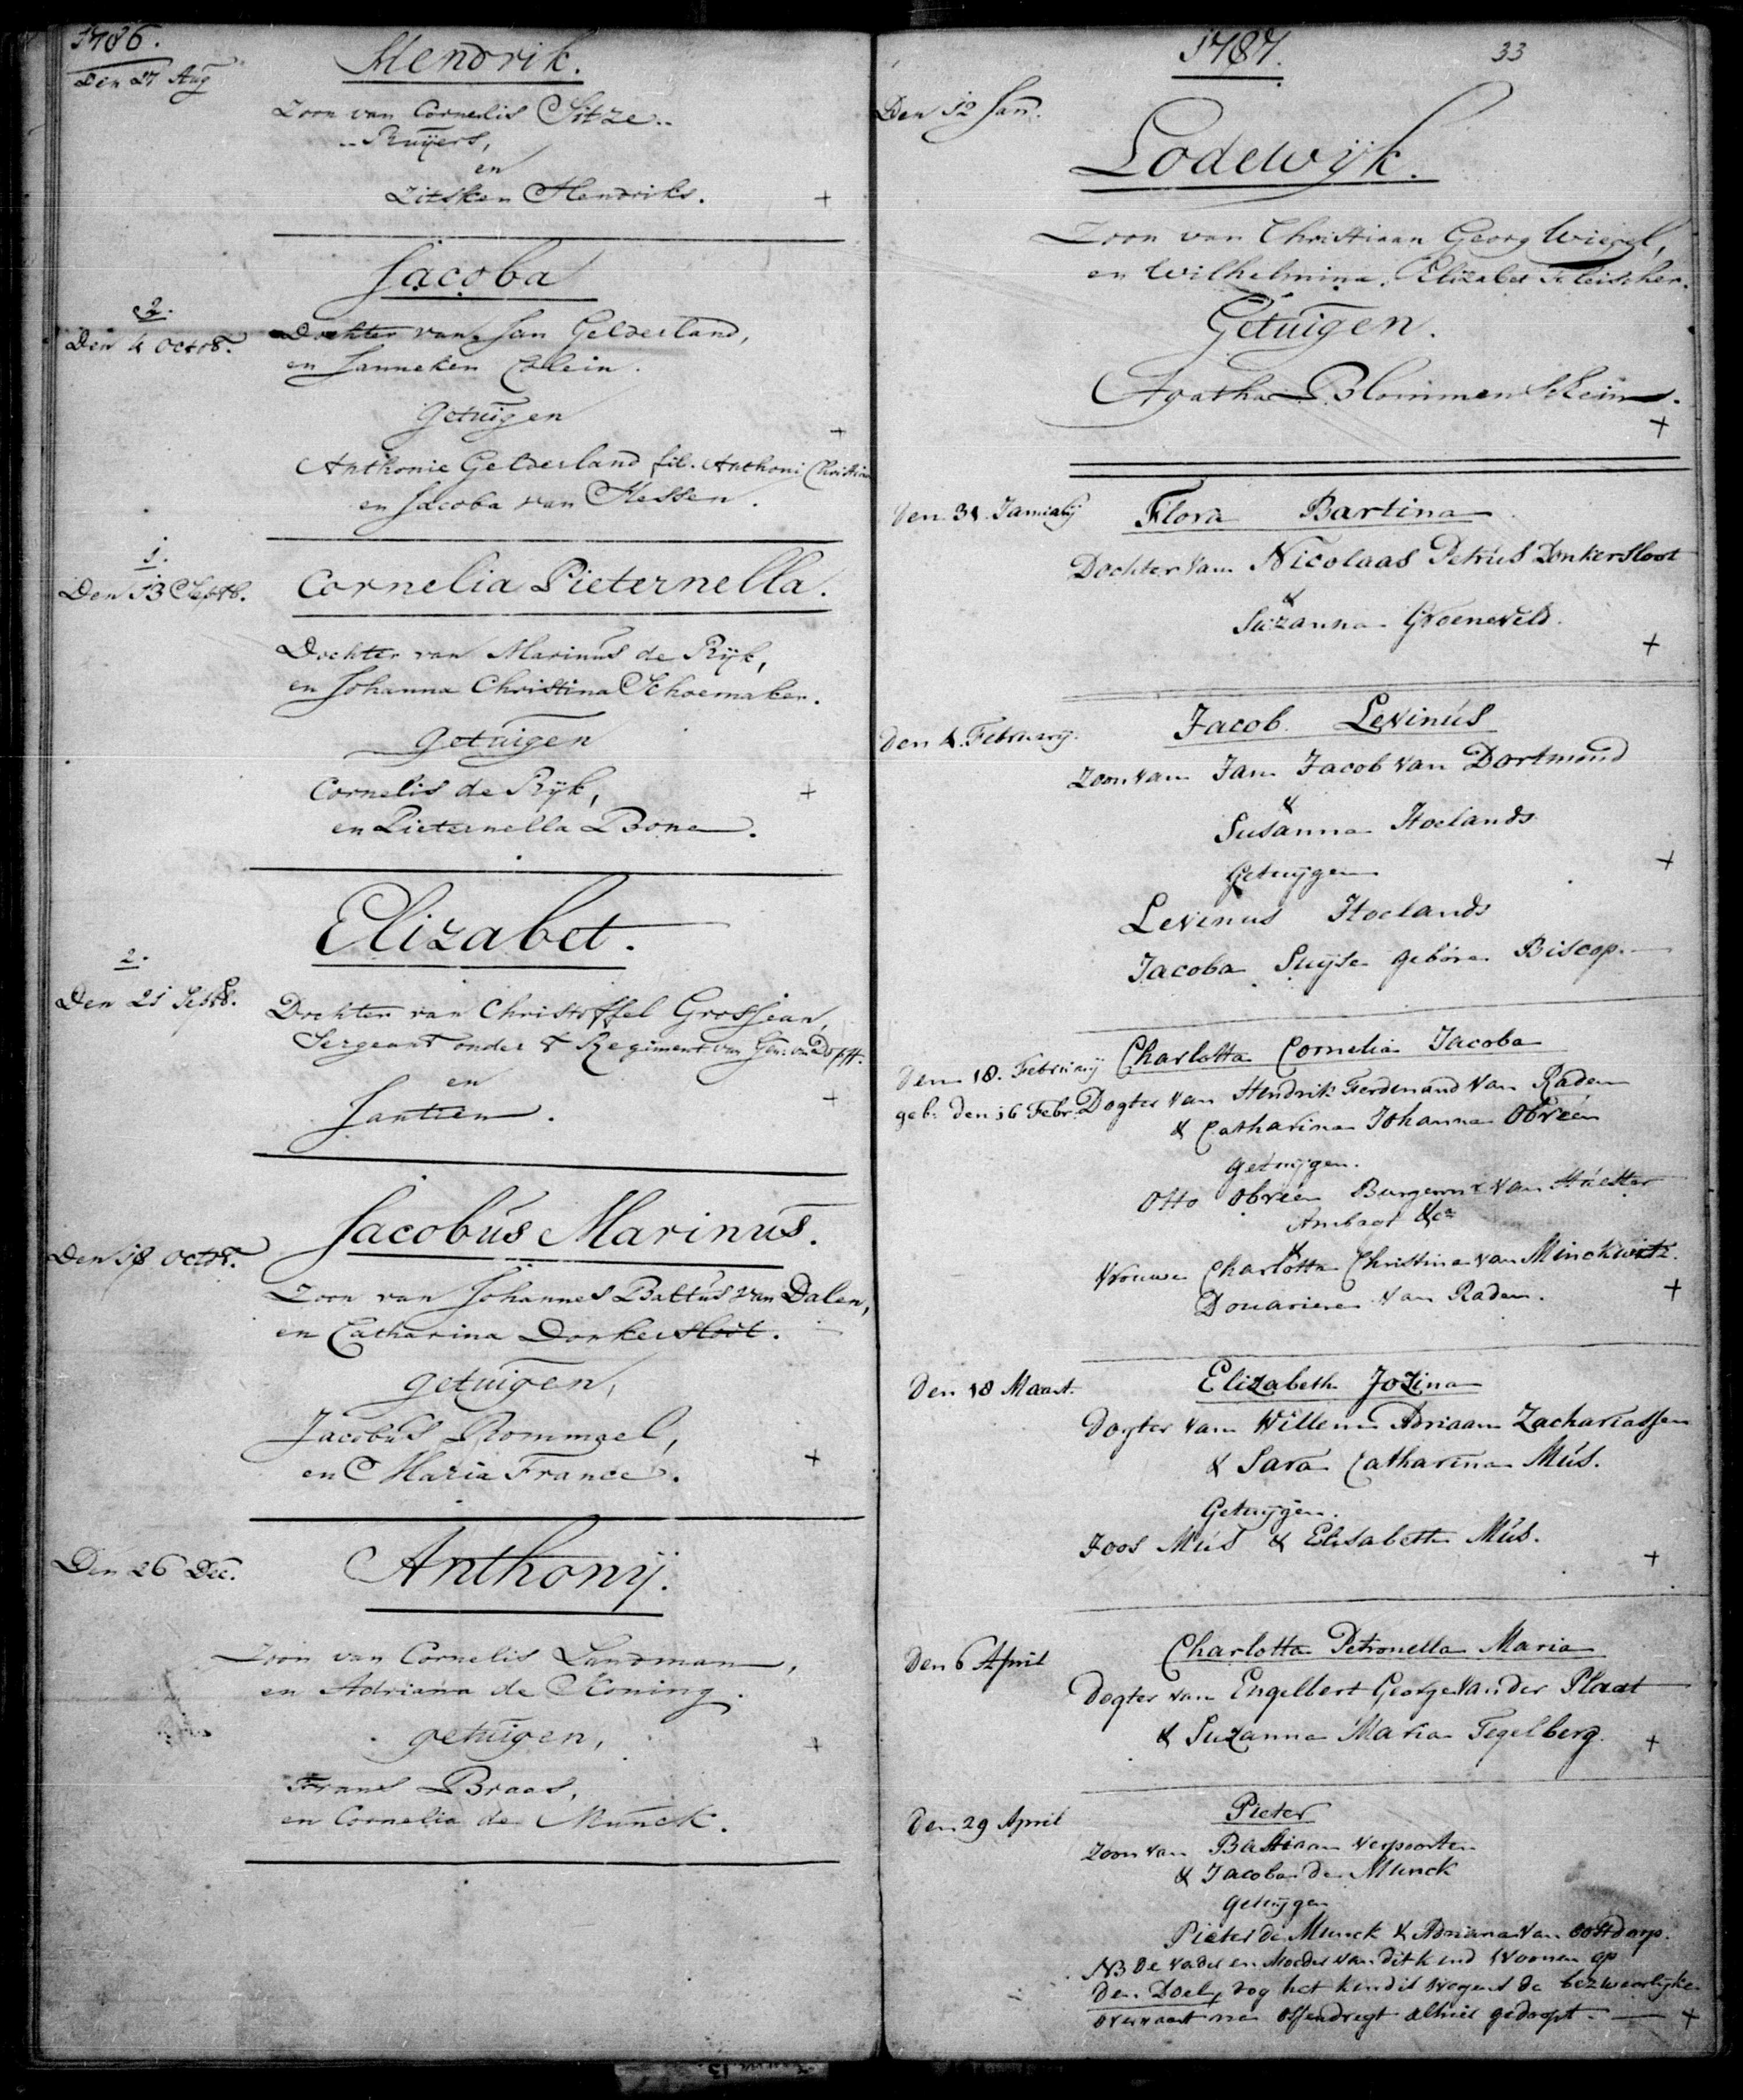 1786.
Den 27 Aug
Hendrik.
Zoon van Cornelis Sitze..
.. Ruijers,
en
Zitsken Hendriks. +
Jacoba
2.
Den 4 Octob.
Dochter van Jan Gelderland,
en Janneken
Getuigen +
Anthonie Gelderland fil. Anthoni Christiaan
en Jacoba van Hessen.
1.
Den 13 Septb.
Cornelia Pieternella.
Dochter van Marinus de Rijk,
en Johanna Christina Schoemaker.
getuigen
Cornelis de Rijk, +
en Pieternella Bone.
Elizabet.
2.
Den 21 Septb.
Dochter van Christoffel Grosjean,
Sergeant onder 't Regiment van Gen: van
en +
Jantien.
Jacobus Marinus.
Den 18 Octob.
Zoon van Johannes Baltus van Dalen,
en Catharina Donkersloot.
getuigen,
Jacobus Rommel,
en Maria France. +
Den 26 Dec.
Anthonij.
Zoon van Cornelis Landman,
en Adriana de Koning.
getuigen, +
Frans Braas,
en Cornelia de Munck.
1787. 33
Den 12 Jan.
Lodewijk.
Zoon van Christiaan Georg Wiegel,
en Wilhelmina Elizabet Fleischer.
Getuigen.
Agatha
+
Den 31 Januarij Flora Bartina
Dochter van Nicolaas Petrus Donkersloot
&
Suzanna Groeneveld.
+
Den 4. February. Jacob Levinus
Zoon van Jan Jacob van Dortmond
&
Susanna Hoelands
Getuijgen +
Levinus Hoelands
Jacoba Suijse gebore Biscop.
Den 18. February Charlotta Cornelia Jacoba
geb. den 16 Febr. Dogter van Hendrik Ferdinand van Raden
& Catharina Johanna Obreen
getuijgen.
Otto Obreen Burgemr van Hulster
Ambagt &ca
&
Vrouwe Charlotta Christina van Minckwitz.
Douariere van Raden. +
Den 18 Maart. Elizabeth Jozina
Dogter van Willem Adriaan Zachariassen
& Sara Catharina Mus.
Getuijgen.
Joos Mus & Elisabeth Mus.
+
Den 6 April Charlotta Petronella Maria
Dogter van Engelbert George van der Plaat
& Suzanna Maria Tegelberg. +
Den 29 April Pieter
Zoon van Bastiaan Verpoorten
& Jacoba de Munck
Getuijgen
Pieter de Munck & Adriana van Oostdorp.
NB De vader en Moeder van dit kind woonen op
den Doel, dog het kind is wegens de bezwaarlijke
overvaart na Ossendregt alhier gedoopt. — +